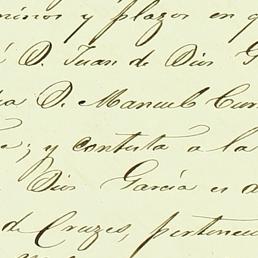 minos y plazos en q
D. Juan de Dios G
ia D. Manuel Cur
e; y contesta a la
Dios García es d
de Cruzes, pertenec